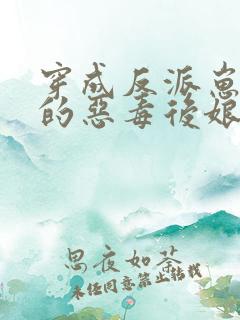 穿成反派崽
的惡毒後娘
思夜如茶
未经同意禁止转载